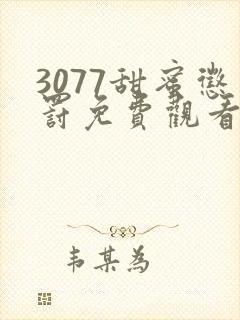 3077甜蜜懲
罰免費觀看
韦某為